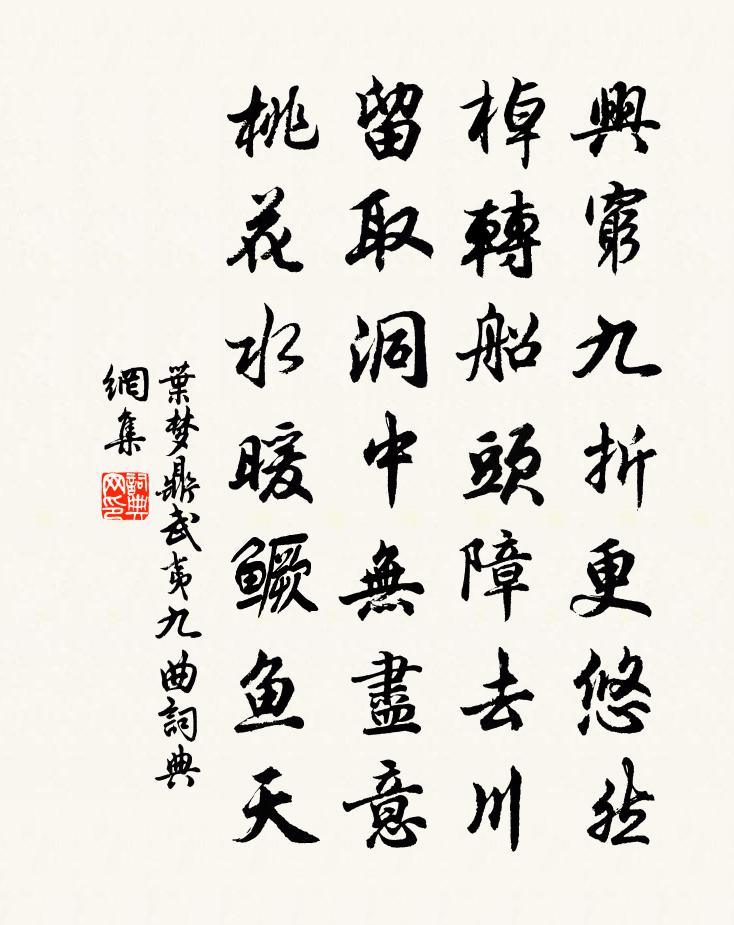 興窮九折更悠然
棹轉船頭障去川
留取洞中無盡意
桃花水暖鳜鱼天
葉梦鼎武夷九曲詞典
網集
詞典网印